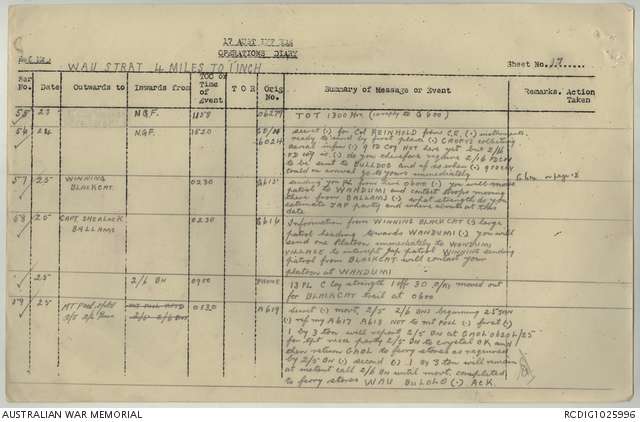 17 AUST INF BDE
OPERATIONS DIARY
WAU STRAT 4 MILES TO 1 INCH
Sheet No. 17.
Ser No. Date Outwards to Inwards from TOO or Time of Event T O R Orig No. Summary of Message or Event Remarks. Action Taken
55 23 NGF. 1158 O6279 TOT 1300 Hrs (comply to G600)
56 24 NGF. 1520 secret (.) for Col REINHOLD from C.E. (.) instruments
ready to send by first plane (.) GROVES collecting
aerial infm (.) 9 FD COY NOT here yet but 2/6
FD COY is (.) do you therefore require 2/6 FD COY
to be sent to BULLDOG and if so when (.) 9 FD COY
could on arrival go to yours immediately
57 25 WINNING BLACKCAT. 0230 G613 sending you Pl from here 0600 (.) you will move
patrol to WANDUMI and contact troops moving
there from BALLAMS (.) what strength do you
estimate JAP party and where abouts at this
date
58 25 CAPT SHERLOCK BALLAMS 0230 G614 Information from WINNING BLACKCAT (.) large
patrol heading towards WANDUMI (.) you will
send one Platoon immediately to WANDUMI
VILLAGE to intercept Jap patrol WINNING sending
patrol from BLACKCAT will contact your
platoon at WANDUMI
25 2/6 BN 0900 PHONE 13 PL C Coy strength 1 off 30 O/Rs moved out
for BLACKCAT trail at 0600
59 25 MT Pool 2/5 2/6 Bns 0130 A619 secret (.) movt. 2/5 2/6 BNS beginning 25 JAN
(.) ref my A617 A613 NOT to MT POOL (.) first (.)
1 by 3 ton will report 2/5 BN at GAOL 0620L/25
for tpt recce party 2/5 BN to crystal CK and
then return GAOL to ferry stores as required
by 2/5 BN (.) second (.) 1 by 3 ton will remain
at instant call 2/6 BN until movt. completed
to ferry stores WAU BULOLO (.) Ack.
AUSTRALIAN WAR MEMORIAL
RCDIG1025996